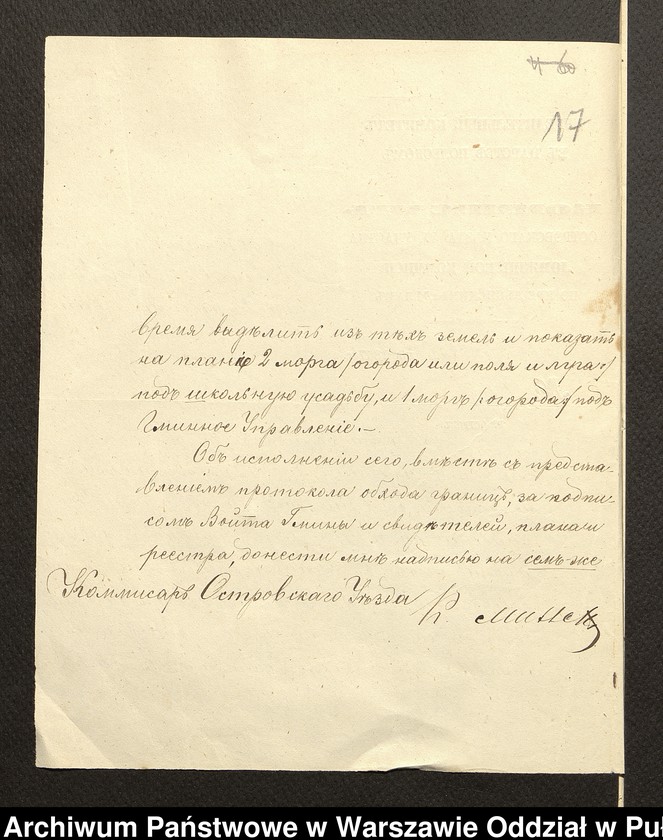 17
время выдѣлить изъ тѣхъ земель и показать
на планѣ 2 морга /:огорода или поля и луга:/
подъ школьную усадьбу, и 1 моргъ /:огорода:/ подъ
Гминное Управленіе.—
Объ исполненіи сего, вмѣстѣ съ предста-
вленіемъ протокола обхода границъ, за подпи-
сомъ Войта Гмины и свидѣтелей, плана и
реестра, донести мнѣ надписью на семъ-же
Коммисаръ Островскаго Уѣзда
Archiwum Państwowe w Warszawie Oddział w Pu